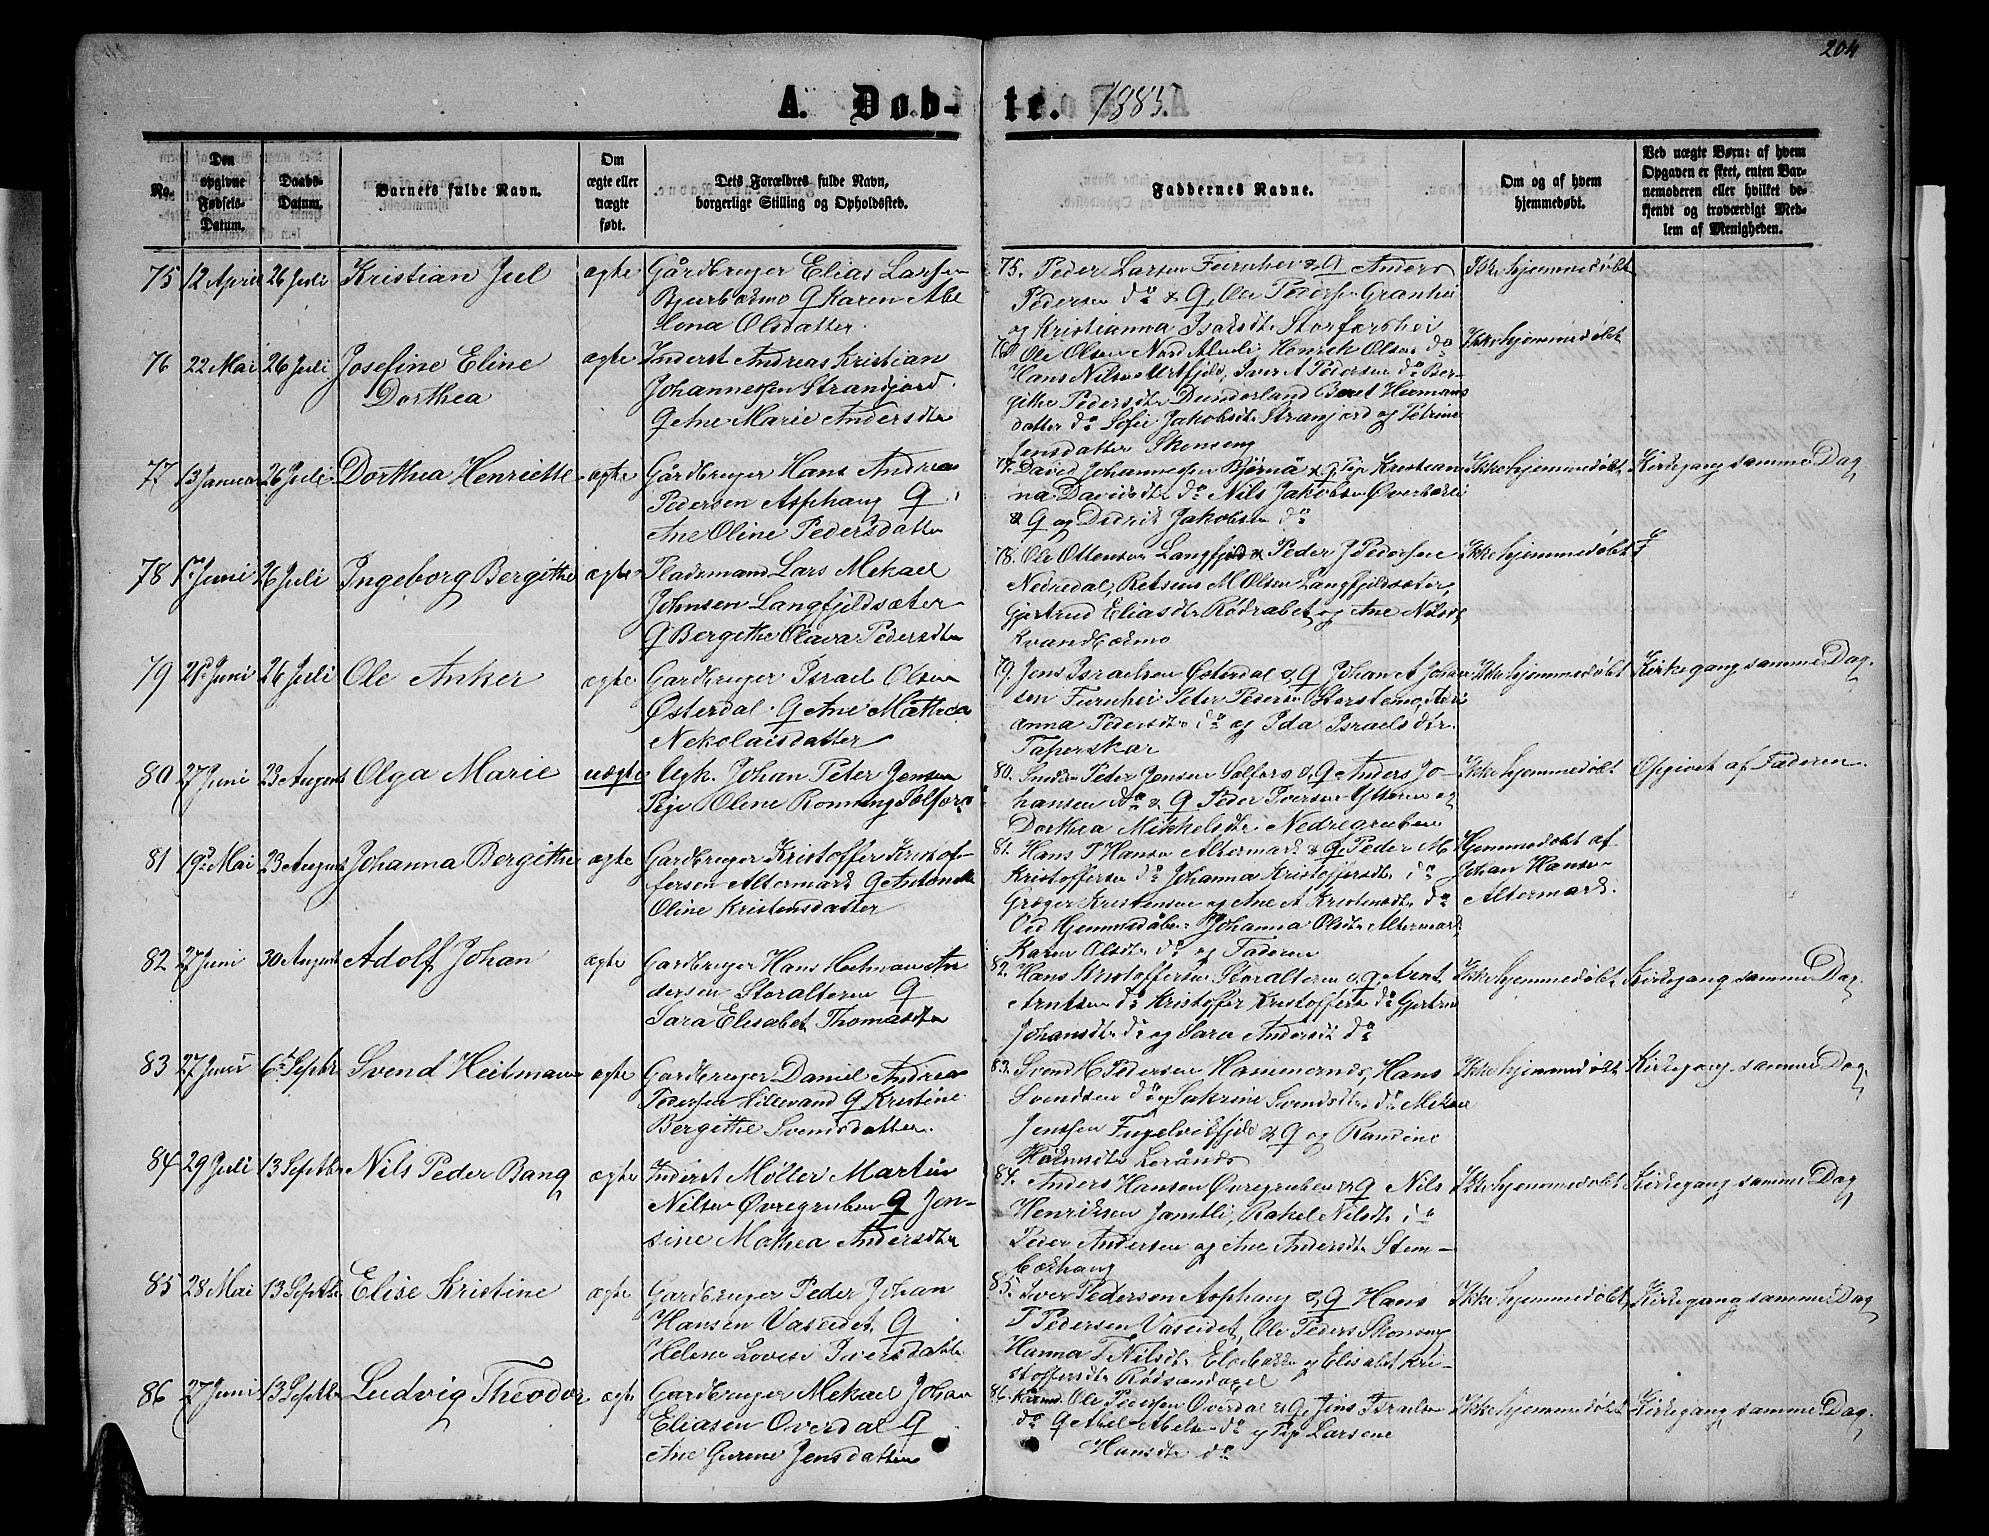 204
A. Døb-te. 1885.
No.
Den opgivne Fødsels-Datum.
Daabs-Datum.
Barnets fulde Navn.
Om ægte eller uægte født.
Dets Forældres fulde Navn, borgerlige Stilling og Opholdssted.
Faddernes Navne.
Om og af hvem hjemmedøbt.
Ved uægte Børn: af hvem Opgaven er skeet, enten Barnemoderen eller hvilket bekjendt og troværdigt Medlem af Menigheden.
75 12 April 26 Juli Kristian Jul ægte Gårdbruger Elias Larsen
Bjurbækmo G Karen Abe
Lona Olsdatter
75. Peder Larsen Furuhei & G Anders
Pedersen do & G, Ole Peders Granhei
og Kristianna Isaksdtr Storforshei
Ikke hjemmedøbt
76 22 Mai 26 Juli Josefine Eline
Dorthea
ægte Inderst Andreas Kristian
Johannessen Strandjord
G Ane Marie Andersdtr
76 Ole Olsen Nord Henrik Olsen do
Hans Nilsen Urtfjeld, Iver A Pedersen do Ber-
gitte Pedersdtr Dunderland Beret Hermans
datter do Sofie Jakobsdtr Stranjord og Petrine
Jensdatter Skonseng
Ikke hjemmedøbt
77 13 Januar 26 Juli Dorthea Henriette ægte Gårdbruger Hans Andreas
Pedersen Asphaug G
Ane Oline Pedersdatter
77. David Johannessen Bjørnå & G Pip Kristian
na Davidsdtr do Nils Jakobsen Øverbækli
& G og Didrik Jakobsen do
Ikke hjemmedøbt Kirkegang samme Dag
78 1ste Juni 26 Juli Ingeborg Bergithe ægte Pladsmand Lars Mekael
Johnsen Langfjeldsæter
G Bergithe Olava Pedersdtr
78. Ole Ottensen Langfjeld & Peder J Pedersen
Nedredal, M Olsen Langfjeldsæter,
Gjertrud Eliasdtr Rødrabet og Ane Nilsdtr
Kvandbækmo
Ikke hjemmedøbt
79 21 Juni 26 Juli Ole Anker ægte Gardbruger Israel Olsen
Østerdal. G Ane Mathea
Nekolaisdatter
79. Jens Israelsen Østerdal & G Johan A Johan
sen Furuhei Peter Peders Storstemo,
anna Pedersdtr do og Ida Israelsdtr
Taperskar
Ikke hjemmedøbt Kirkegang samme Dag.
80 27 Juni 23 August Olga Marie uægte Ugk. Johan Peter Jensen
Pige Oline Rønning Solfors
80. Peter Jensen Solfors & G Anders Jo-
hansen do & G Peder Iversen Ytteren og
Dorthea Mikkelsdtr Nedregruben
Ikke hjemmedøbt Opgivet af Faderen
81 19de Mai 23 August Johanna Bergithe ægte Gardbruger Kristoffer Kristof-
fersen Altermark G Antonette
Oline Kristensdatter
81. Hans P Hansen Altermark & G, Peder M
Kristoffersen do Johanna Kristoffersdtr do
Grøger Kristensen og Ane A Kristensdtr do
Ved Hjemmedåben Johanna Olsdtr Altermark
Karen Olsdtr do og Faderen
Hjemmedøbt af
Johan Hansen
Altermark.
82 27 Juni 30 August Adolf Johan ægte Gardbruger Hans Heitman An
dersen Storalteren G
Sara Elisabet Thomasdtr
82. Hans Kristoffersen Storalteren & G, Arnt
Arntsen do Kristoffer Kristoffersen do Gjertru
Johansdtr do og Sara Andersdtr do
Ikke hjemmedøbt Kirkegang samme Dag.
83 27 Juni 6te Septbr Svend Heitmann ægte Gardbruger Daniel Andreas
Pedersen Hillerand G Kristine
Bergithe Svensdatter.
83. Svend C Pedersen Hammernæs, Hans
Svendsen do og Sakrine Svendsdtr do Mekal
Jenssen Fugelvikfjeld & G og Randine
Holmsdtr Lerånds
Ikke hjemmedøbt Kirkegang samme Dag
84 29 Juli 13 Septbr Nils Peder Bang ægte Inderst Møller Martin
Nilsen Øvregruben G Jen-
sine Mathea Andersdtr
84. Anders Hansen Øvregruben & G Nils
Henriksen Jamtli, Rakel Nilsdtr do
Peder Andersen og Ane Andersdtr Stem-
bækhaug
Ikke hjemmedøbt Kirkegang samme Dag
85 28 Mai 13 Septbr Elise Kristine ægte Gardbruger Peder Johan
Hansen Vaseidet G
Helene Lovise Iversdatter
85. Iver Pedersen Asphaug & G Hans
P Pedersen Vaseidet, Ole Peders Skonseng
Hanna F Nilsdtr og Elisabet Kri-
stoffersdtr Rødsandaxel
Ikke hjemmedøbt Kirkegang samme Dag
86 27 Juni 13 Septbr Ludvig Theodor ægte Gardbruger Mekael Johan
Eliasen Overdal G
Ane Gurine Jensdatter
86. Ole Pedersen Overdal & G, Jens Israelsen
do G Abel Abelsen do og Pige Larsene
Hansdtr do
Ikke hjemmedøbt Kirkegang samme Dag.